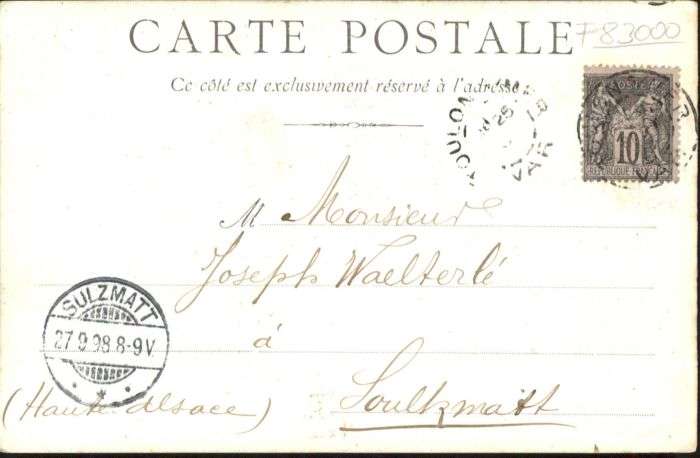 CARTE POSTALE
F83000
Ce côté est exclusivement réservé à l'adresse.
TOULON
VAR
POSTE
10
RÉPUBLIQUE FRANÇAISE
M Monsieur
Joseph Waelterlé
à
Soultzmatt
(Haute Alsace)
SULZMATT
27.9.98.8-9V.